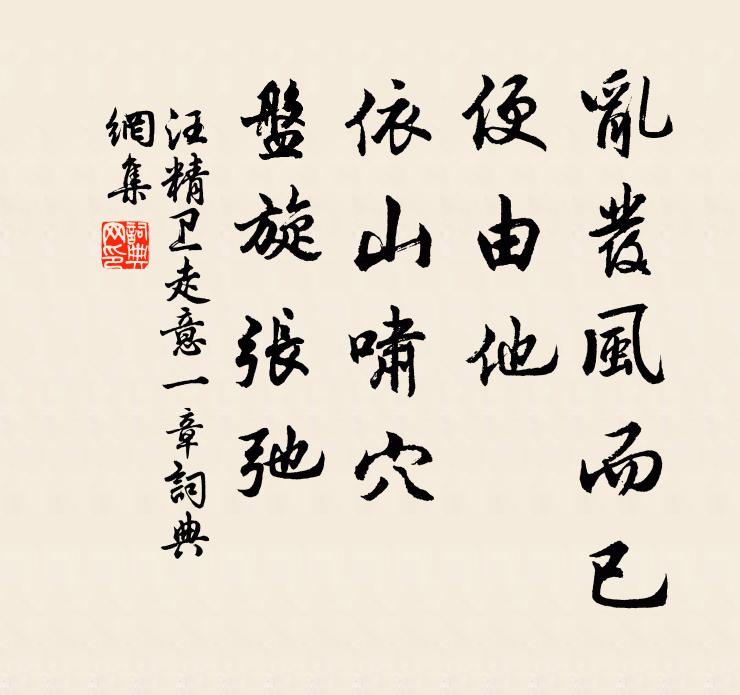 亂發風而已
便由他
依山嘯穴
盤旋張弛
汪精卫走意一章詞典
網集
詞典
网印